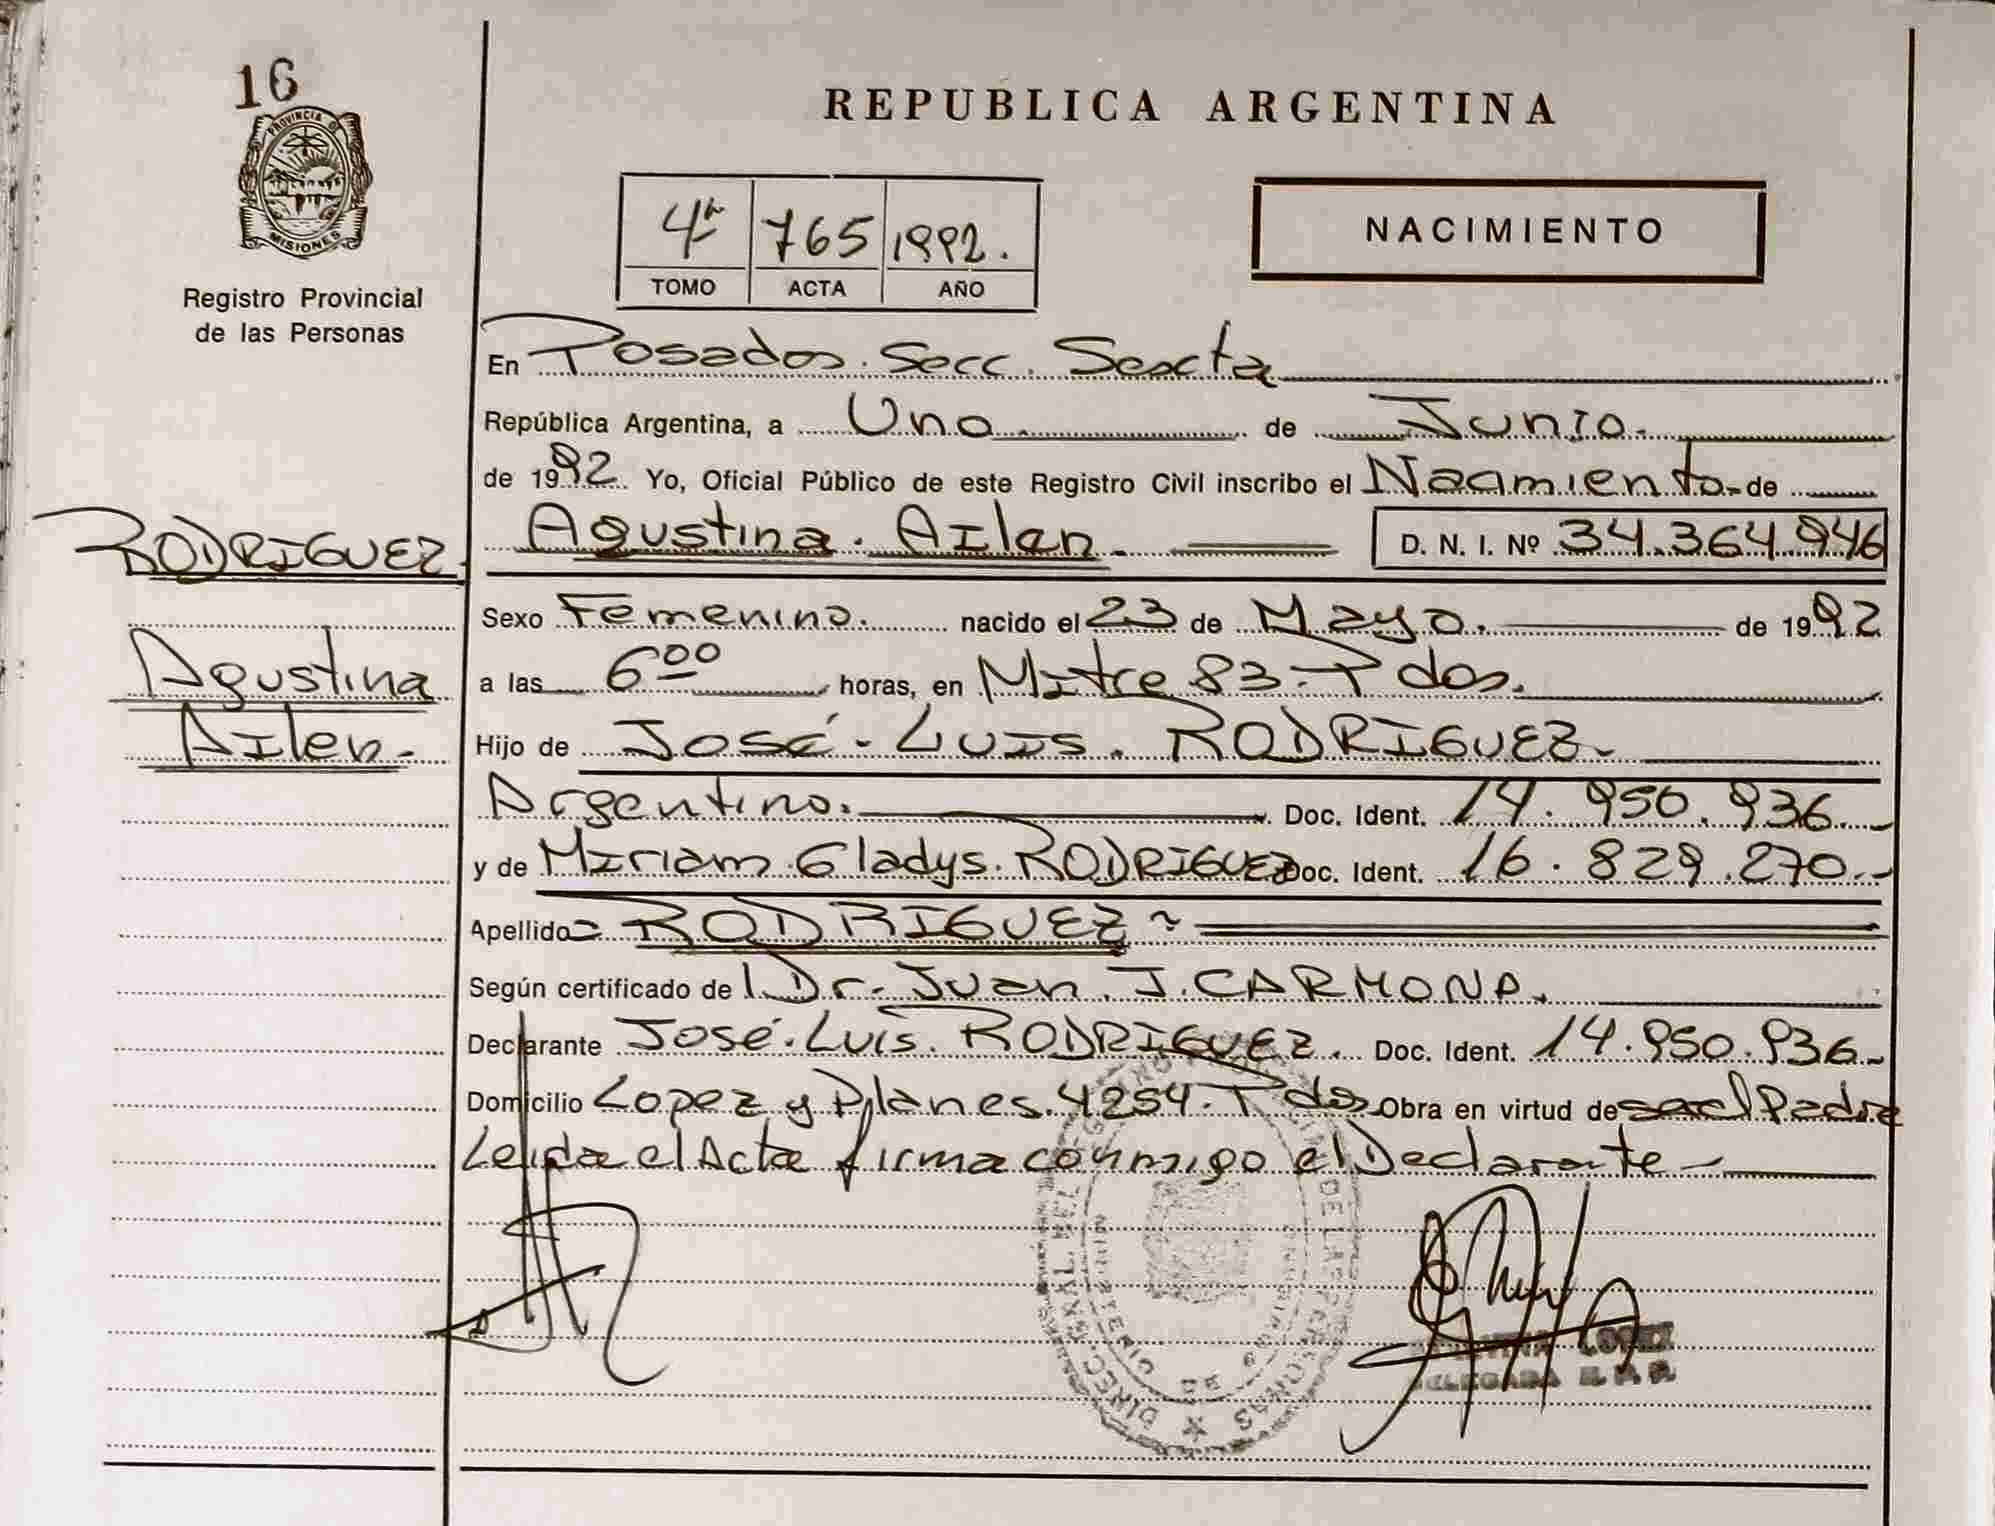 16
PROVINCIA DE
MISIONES
Registro Provincial
de las Personas
REPUBLICA ARGENTINA
4ª 765 1992.
TOMO ACTA AÑO
NACIMIENTO
En Posadas. Secc. Sexta
República Argentina, a Uno de Junio.
de 1992. Yo, Oficial Público de este Registro Civil inscribo el Nacimiento de
RODRIGUEZ.
Agustina. Ailen. D. N. I. Nº 34.364.946
Sexo Femenino. nacido el 23 de Mayo. de 1992
Agustina
Ailen.
a las 6 00 horas, en Mitre 83 - Pdas.
Hijo de José - Luis. RODRIGUEZ-
Argentino. Doc. Ident. 14.950.936-
y de Miriam. Gladys. RODRIGUEZ Doc. Ident. 16.829.270-
Apellido= RODRIGUEZ ~
Según certificado del Dr. Juan. J. CARMONA.
Declarante José. Luis. RODRIGUEZ. Doc. Ident. 14.950.936-
Domicilio Lopez y Planes. 4254. Pdas Obra en virtud de ser el Padre
Leida el Acta firma conmigo el Declarante -
DELEGADA R. P. P.